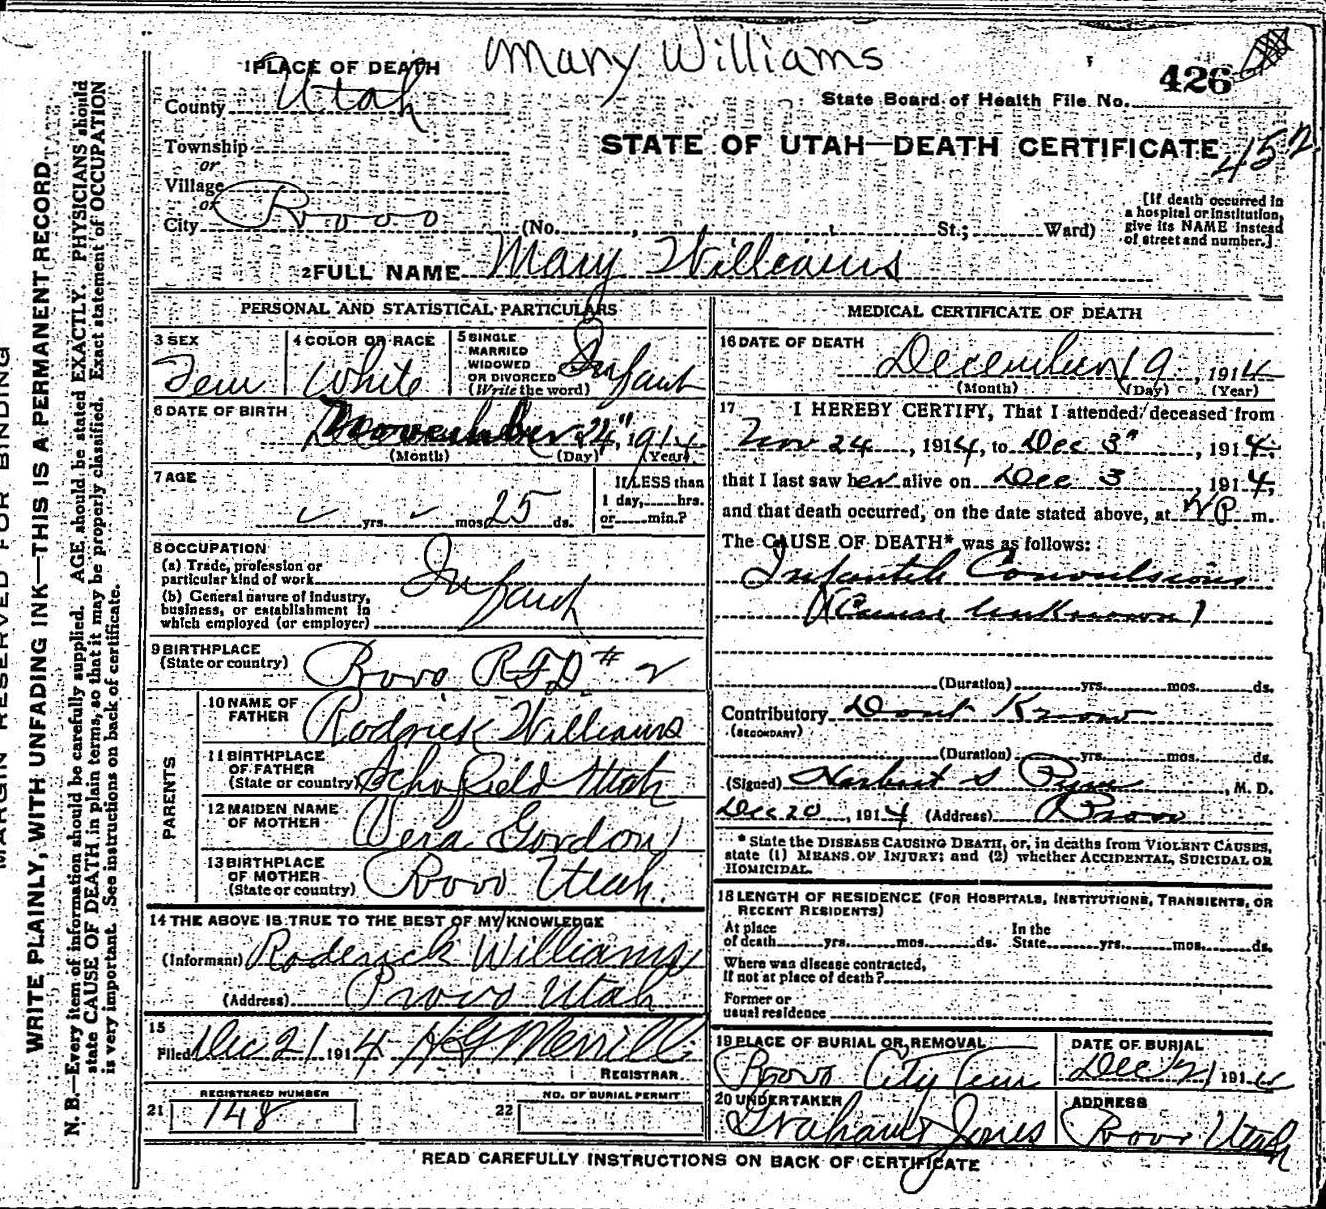 Mary Williams
1 PLACE OF DEATH
426
County Utah
State Board of Health File No.
Township
STATE OF UTAH—DEATH CERTIFICATE 452
or
Village
or
City Provo
(No. , St.; Ward)
[If death occurred in
a hospital or institution,
give its NAME instead
of street and number.]
2 FULL NAME Mary Williams
PERSONAL AND STATISTICAL PARTICULARS
3 SEX
Fem
4 COLOR OR RACE
White
5 SINGLE
MARRIED
WIDOWED
OR DIVORCED
(Write the word)
Infant
6 DATE OF BIRTH
November 24", 1914
(Month) (Day) (Year)
7 AGE
✓ yrs. ✓ mos. 25 ds.
If LESS than
1 day, hrs.
or min.?
8 OCCUPATION
(a) Trade, profession or
particular kind of work
(b) General nature of industry,
business, or establishment in
which employed (or employer)
Infant
9 BIRTHPLACE
(State or country)
Provo RFD # 2
PARENTS
10 NAME OF
FATHER
Rodrick Williams
11 BIRTHPLACE
OF FATHER
(State or country)
Schofield Utah
12 MAIDEN NAME
OF MOTHER
Vera Gordon
13 BIRTHPLACE
OF MOTHER
(State or country)
Provo Utah.
14 THE ABOVE IS TRUE TO THE BEST OF MY KNOWLEDGE
(Informant) Roderick Williams
(Address) Provo Utah
15
Filed Dec 21 1914 HG Merrill
REGISTRAR
REGISTERED NUMBER
21 148
NO. OF BURIAL PERMIT
22
MEDICAL CERTIFICATE OF DEATH
16 DATE OF DEATH
December 19, 1914
(Month) (Day) (Year)
17 I HEREBY CERTIFY, That I attended deceased from
Nov 24, 1914, to Dec 3", 1914,
that I last saw her alive on Dec 3, 1914,
and that death occurred, on the date stated above, at P. m.
The CAUSE OF DEATH* was as follows:
Infantile Convulsions
(Cause Unknown)
(Duration) yrs. mos. ds.
Contributory Dont Know
(SECONDARY)
(Duration) yrs. mos. ds.
(Signed) Herbert S Pyne, M. D.
Dec 20, 1914 (Address) Provo
* State the DISEASE CAUSING DEATH, or, in deaths from VIOLENT CAUSES,
state (1) MEANS OF INJURY; and (2) whether ACCIDENTAL, SUICIDAL OR
HOMICIDAL.
18 LENGTH OF RESIDENCE (FOR HOSPITALS, INSTITUTIONS, TRANSIENTS, OR
RECENT RESIDENTS)
At place
of death yrs. mos. ds.
In the
State yrs. mos. ds.
Where was disease contracted,
If not at place of death?
Former or
usual residence
19 PLACE OF BURIAL OR REMOVAL
Provo City Cem
DATE OF BURIAL
Dec 21 1914
20 UNDERTAKER
Graham & Jones
ADDRESS
Provo Utah
READ CAREFULLY INSTRUCTIONS ON BACK OF CERTIFICATE
MARGIN RESERVED FOR BINDING
WRITE PLAINLY, WITH UNFADING INK—THIS IS A PERMANENT RECORD.
N. B.—Every item of information should be carefully supplied. AGE should be stated EXACTLY. PHYSICIANS should
state CAUSE OF DEATH in plain terms, so that it may be properly classified. Exact statement of OCCUPATION
is very important. See instructions on back of certificate.